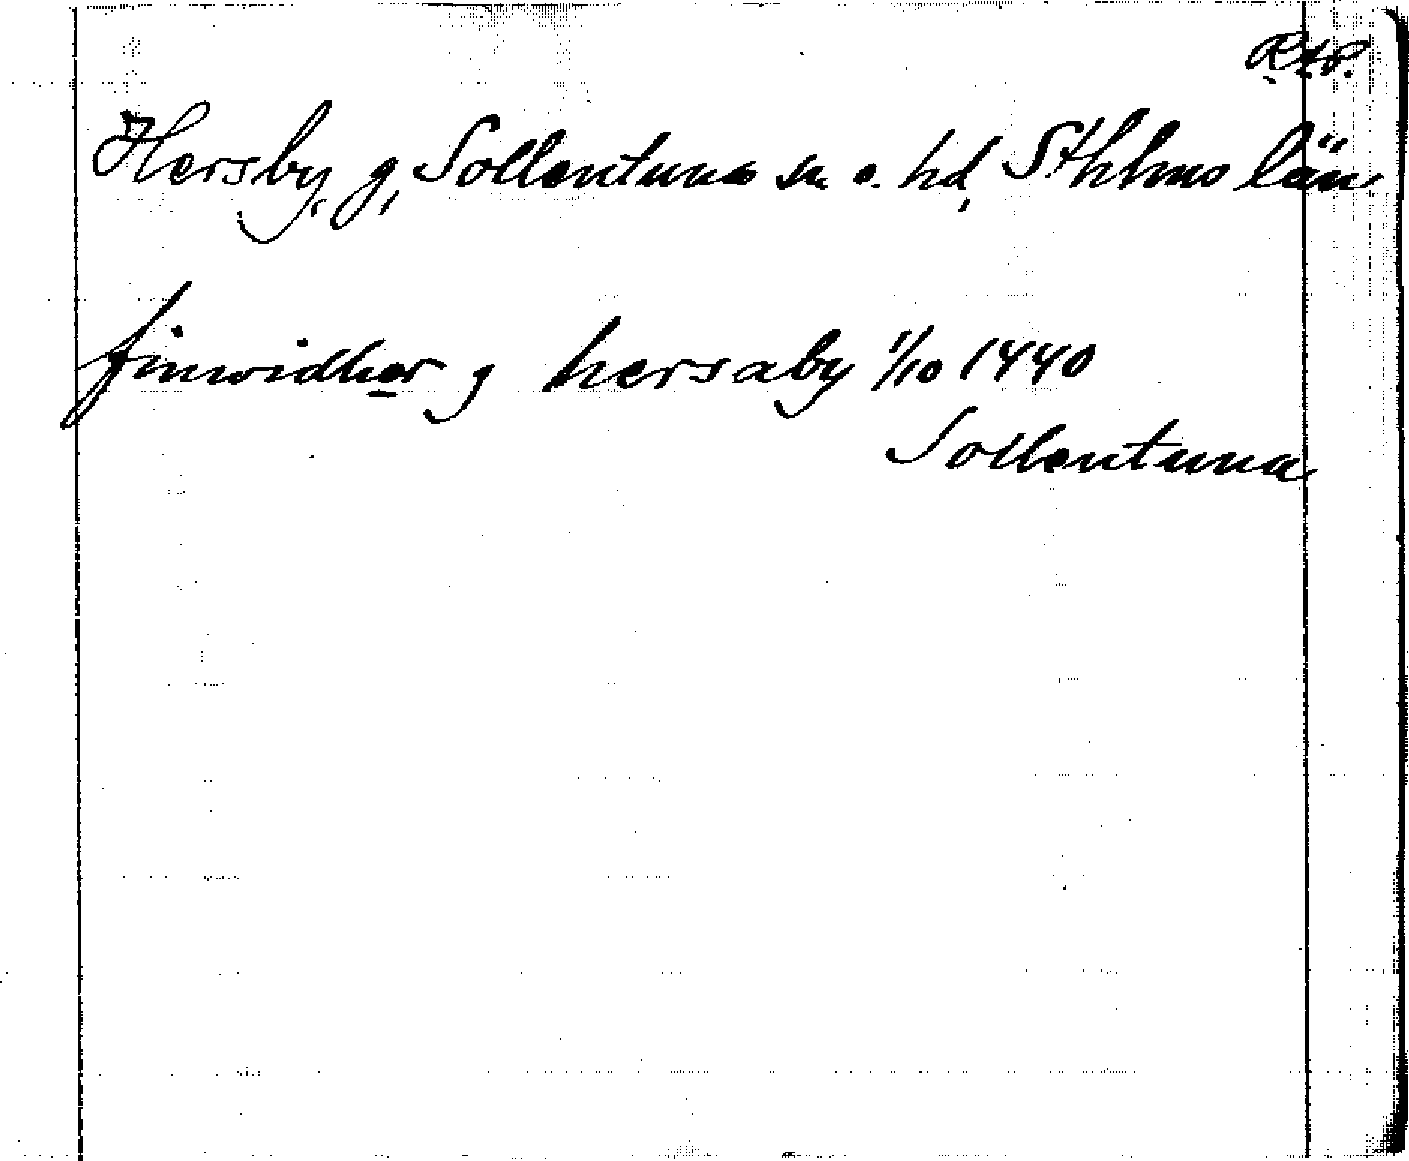 Hersby, g, Sollentuna sn o. hd, Sthlms län,
finwidher j hersaby 1/10 1440
Sollentuna